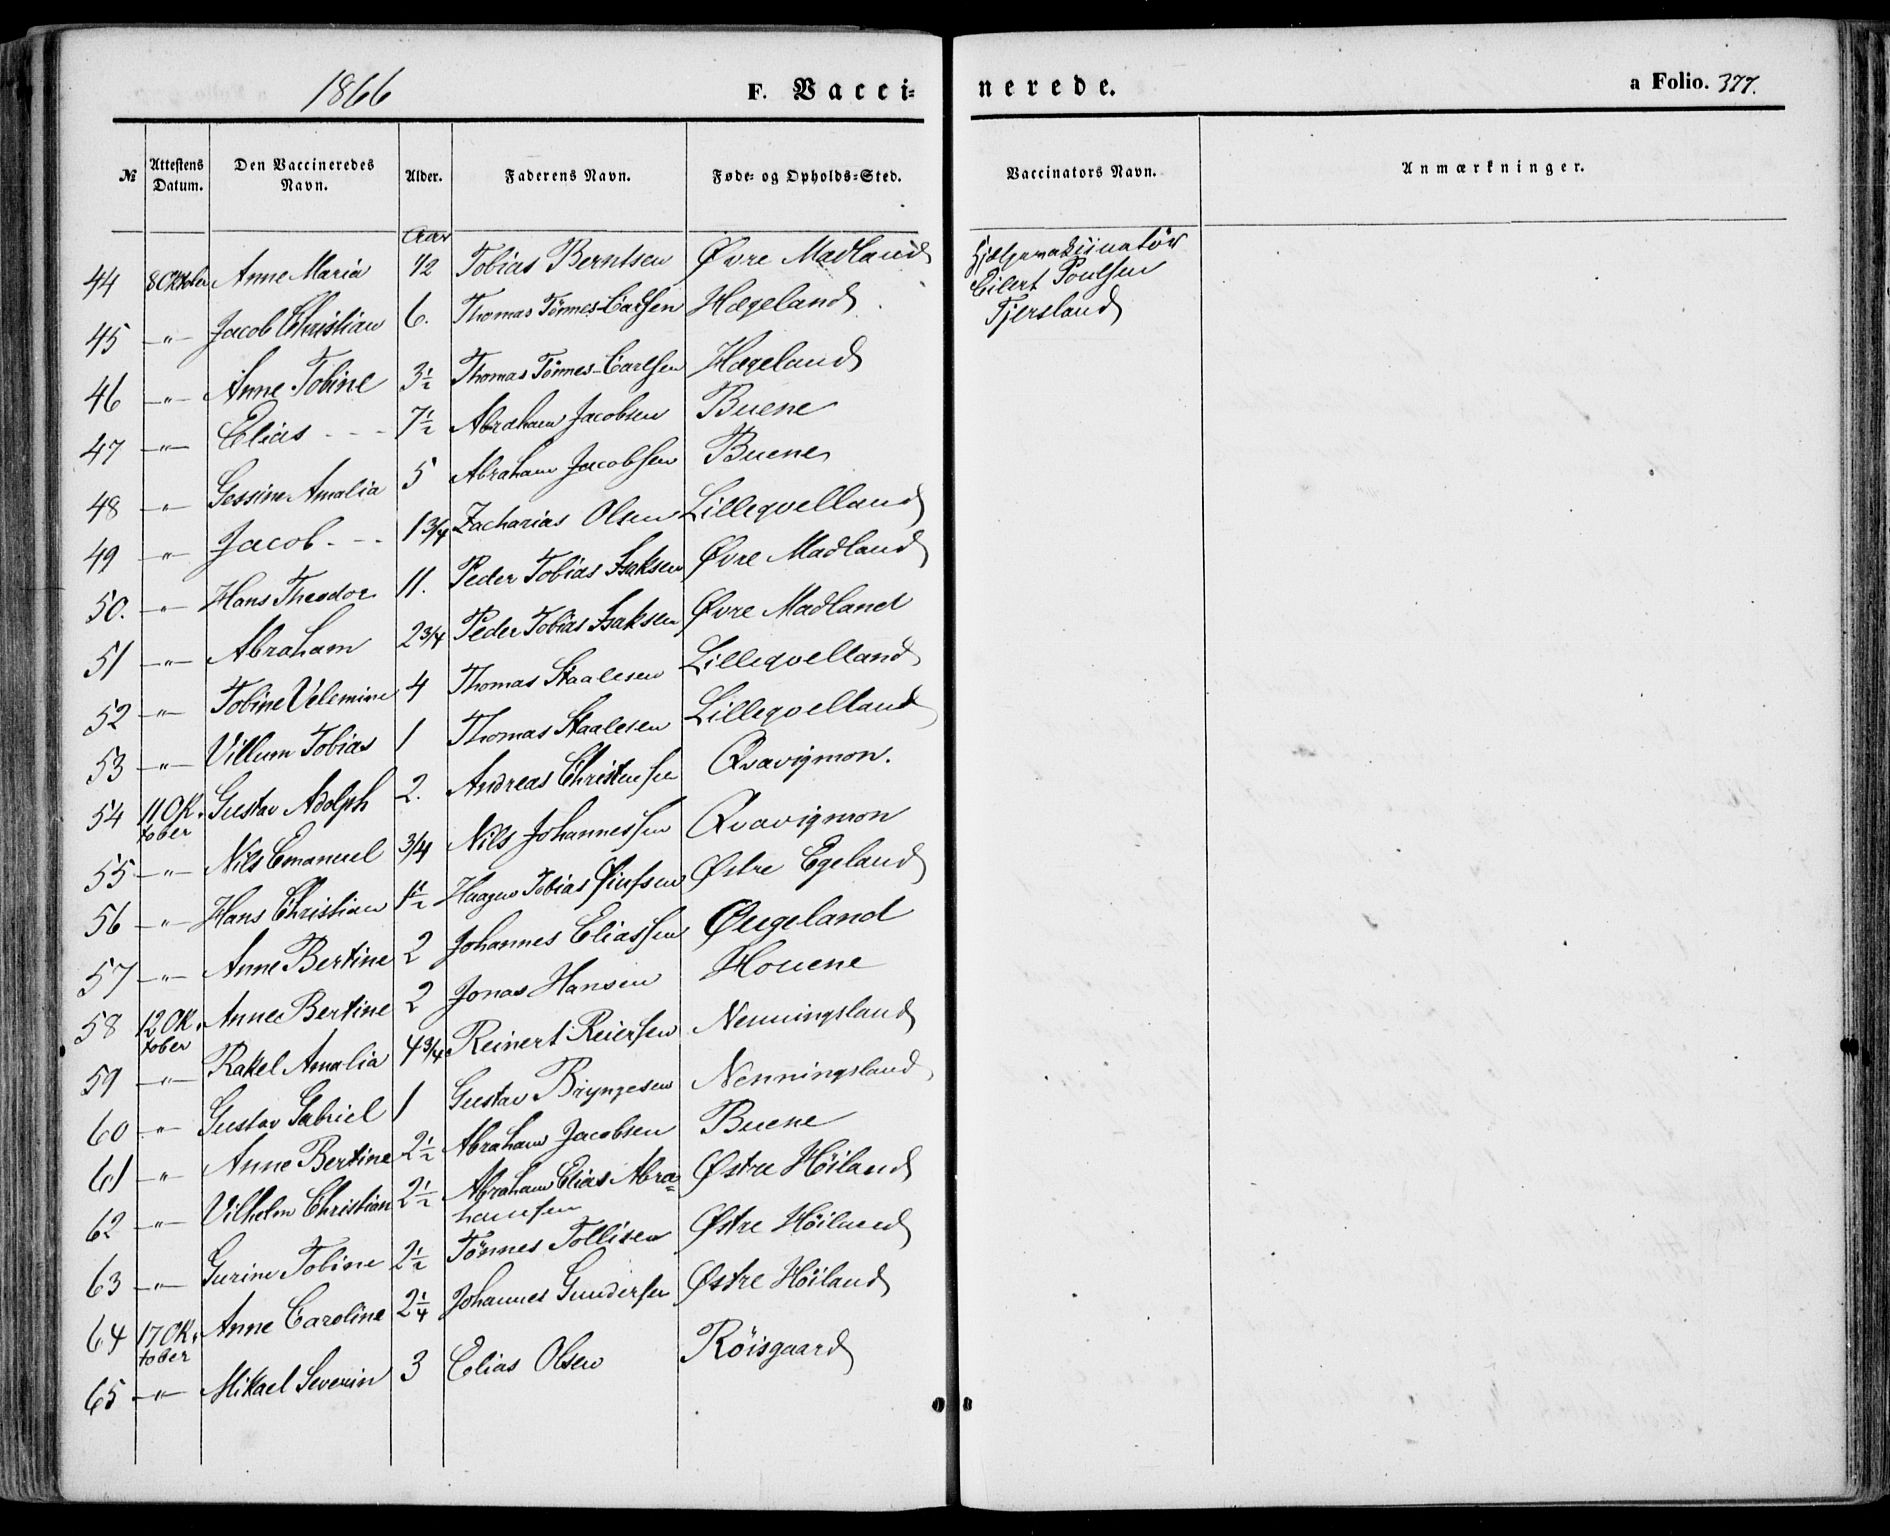 1866 F. Vacci= nerede. a Folio. 377.
№ Attestens Datum. Den Vaccineredes Navn. Alder. Faderens Navn. Føde- og Opholds-Sted. Vaccinators Navn. Anmærkninger.
Aar
44 8 Oktober Anne Maria 1/2 Tobias Berntsen Øvre Madland Hjælpevakcinatør
Eilert Poulsen
45 -〃- Jacob Christian 6. Thomas Tønnes-Carlsen Hægeland Tjersland
46 -〃- Anne Tobine 3 1/2 Thomas Tønnes-Carlsen Hægeland
47 -〃- Elias - - - 7 1/2 Abraham Jacobsen Buene
48 -〃- Gessine Amalia 5 Abraham Jacobsen Buene
49 -〃- Jacob - - - 1 3/4 Zacharias Olsen Lilleqvelland
50. -〃- Hans Theodor 11. Peder Tobias Isaksen Øvre Madland
51 -〃- Abraham 2 3/4 Peder Tobias Isaksen Øvre Madland
52 -〃- Tobine Velemine 4 Thomas Staalesen Lilleqvelland
53 -〃- Villum Tobias 1 Thomas Staalesen Lilleqvelland
54 11 Ok- Gustav Adolph 2. Andreas Christensen Qvavigmon.
tober
55 -〃- Nils Emanuel 3/4 Nils Johannessen Qvavigmon
56 -〃- Hans Christian 1 1/2 Haagen Tobias Østre Egeland
57 -〃- Anne Bertine 2 Johannes Eliassen Øugeland
58 12 Ok- Anne Bertine 2 Jonas Hansen Houene
tober
59 -〃- Rakel Amalia 4 3/4 Reinert Reiersen Nenningsland
60 -〃- Gustav Gabriel 1 Gustav Bryngesen Nenningsland
61 -〃- Anne Bertine 2 1/2 Abraham Jacobsen Buene
62 -〃- Vilhelm Christian 2 1/2 Abraham Elias Abra= Østre Höiland
hamsen
63 -〃- Gurine Tobine 2 1/2 Tønnes Tollisen Østre Höiland
64 17 Ok- Anne Caroline 2 1/4 Johannes Gundersen Østre Höiland
tober
65 -〃- Mikael Severin 3 Elias Olsen Röisgaard